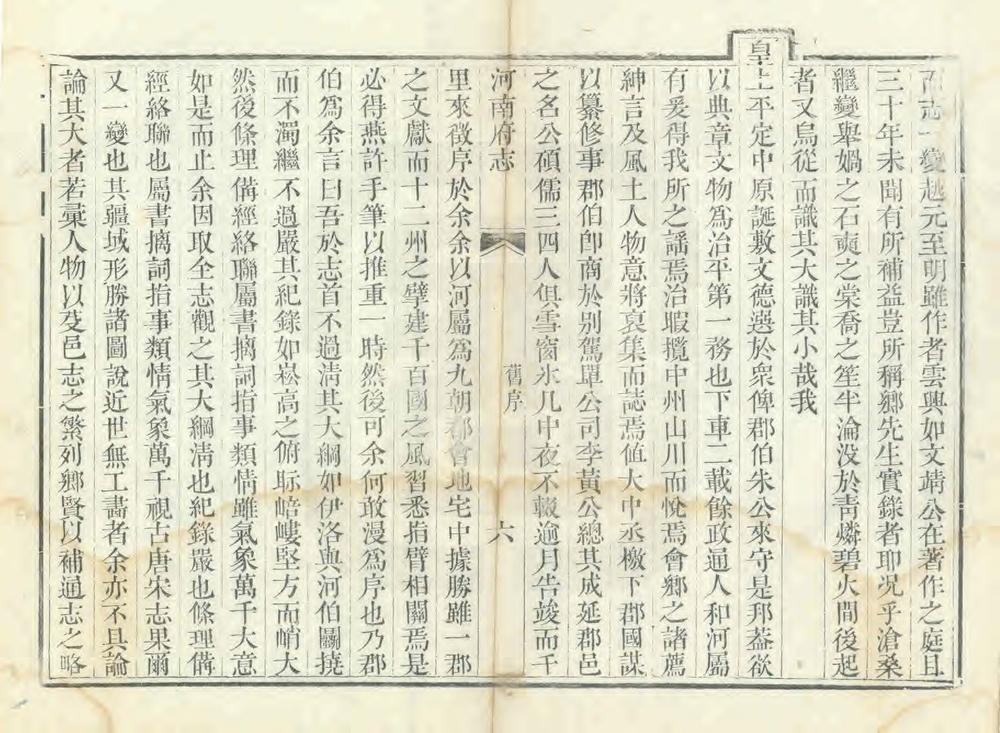 而志一變越元至明雖作者雲興如文靖公在著作之庭且
三十年未聞有所補益豈所稱鄉先生實錄者耶况乎滄桑
繼變舉媧之石奭之棠喬之笙半淪没於靑燐碧火間後起
者又烏從而識其大識其小哉我
皇上平定中原誕敷文德選於衆俾郡伯朱公來守是邦葢欲
以典章文物爲治平第一務也下車二載餘政通人和河屬
有爰得我所之謡焉治暇攬中州山川而悅焉會鄉之諸薦
紳言及風土人物意將裒集而誌焉値大中丞檄下郡國謀
以纂修事郡伯卽商於别駕單公司李黃公總其成延郡邑
之名公碩儒三四人俱雪窗氷几中夜不輟逾月告竣而千
河南府志
舊序
六
里來徵序於余余以河屬爲九朝都會地宅中據勝雖一郡
之文獻而十二州之肇建千百國之風習悉指臂相關焉是
必得燕許手筆以推重一時然後可余何敢漫爲序也乃郡
伯爲余言曰吾於志首不過淸其大綱如伊洛與河伯鬭撓
而不濁繼不過嚴其紀錄如崧高之俯眎㟝嶁堅方而峭大
然後條理備經絡聯屬書摛詞指事類情雖氣象萬千大意
如是而止余因取全志觀之其大綱淸也紀錄嚴也條理備
經絡聯也屬書摛詞指事類情氣象萬千視古唐宋志果爾
又一變也其疆域形勝諸圖說近世無工畵者余亦不具論
論其大者若彙人物以芟邑志之繁列鄉賢以補通志之略